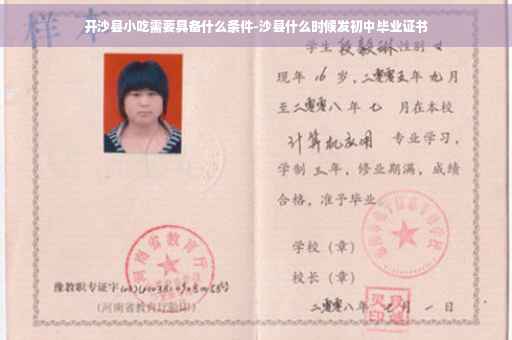 开沙县小吃需要具备什么条件-沙县什么时候发初中毕业证书
样本
学生段毅琳性别女
现年16岁，二零零五年九月
至二零零八年七月在本校
计算机应用 专业学习，
学制三年，修业期满，成绩
合格，准予毕业。
学校（章）
河南省教育厅
校长（章）
豫教职专证字
（河南省教育厅验印）
二零零八年七月一日